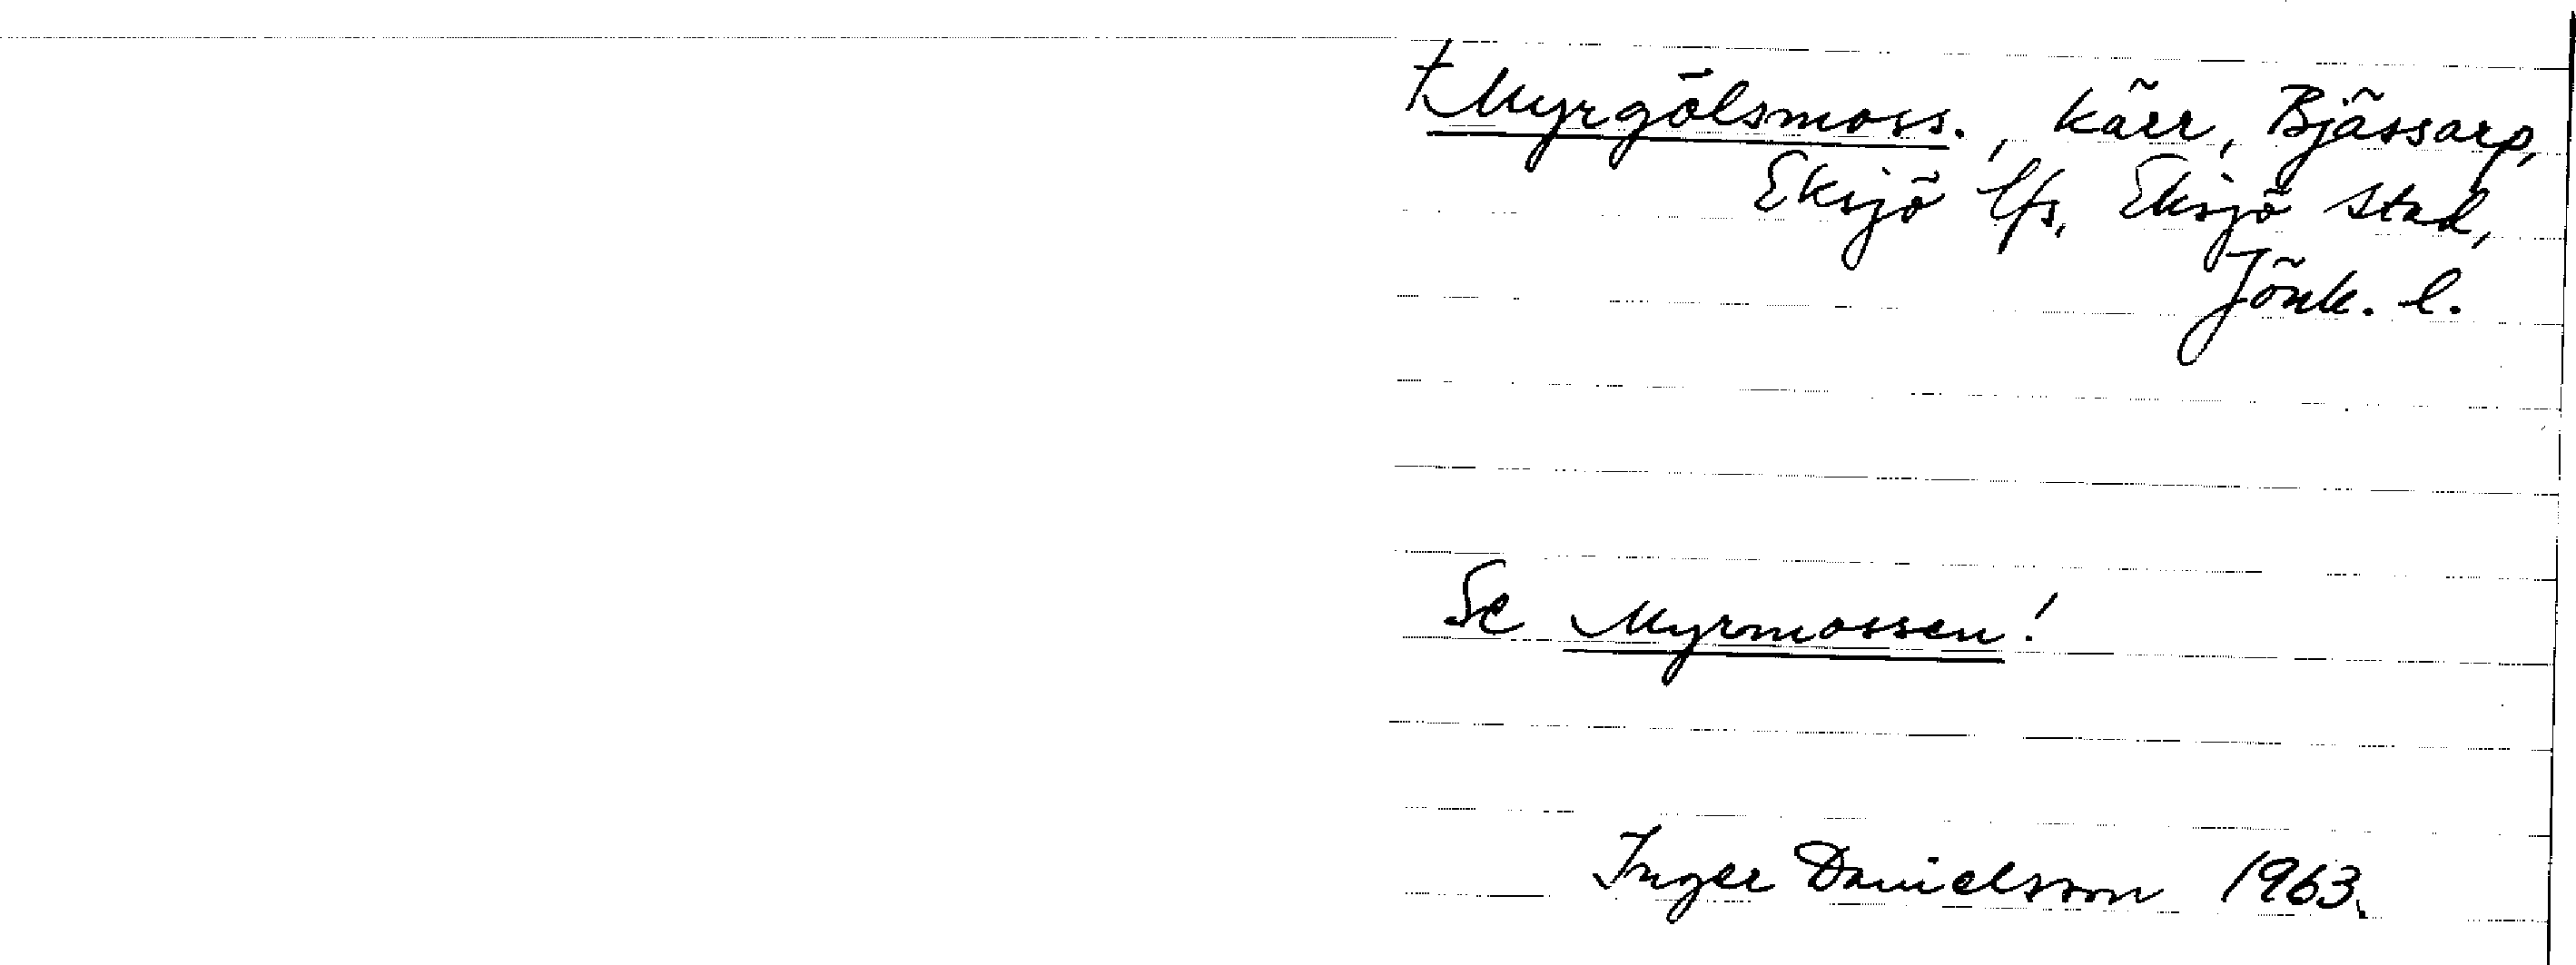 † Myrgölsmoss., kärr, Bjässarp,
Eksjö lfs, Eksjö stad,
Jönk. l.
Se Myrmossen!
Inger Danielsson 1963.